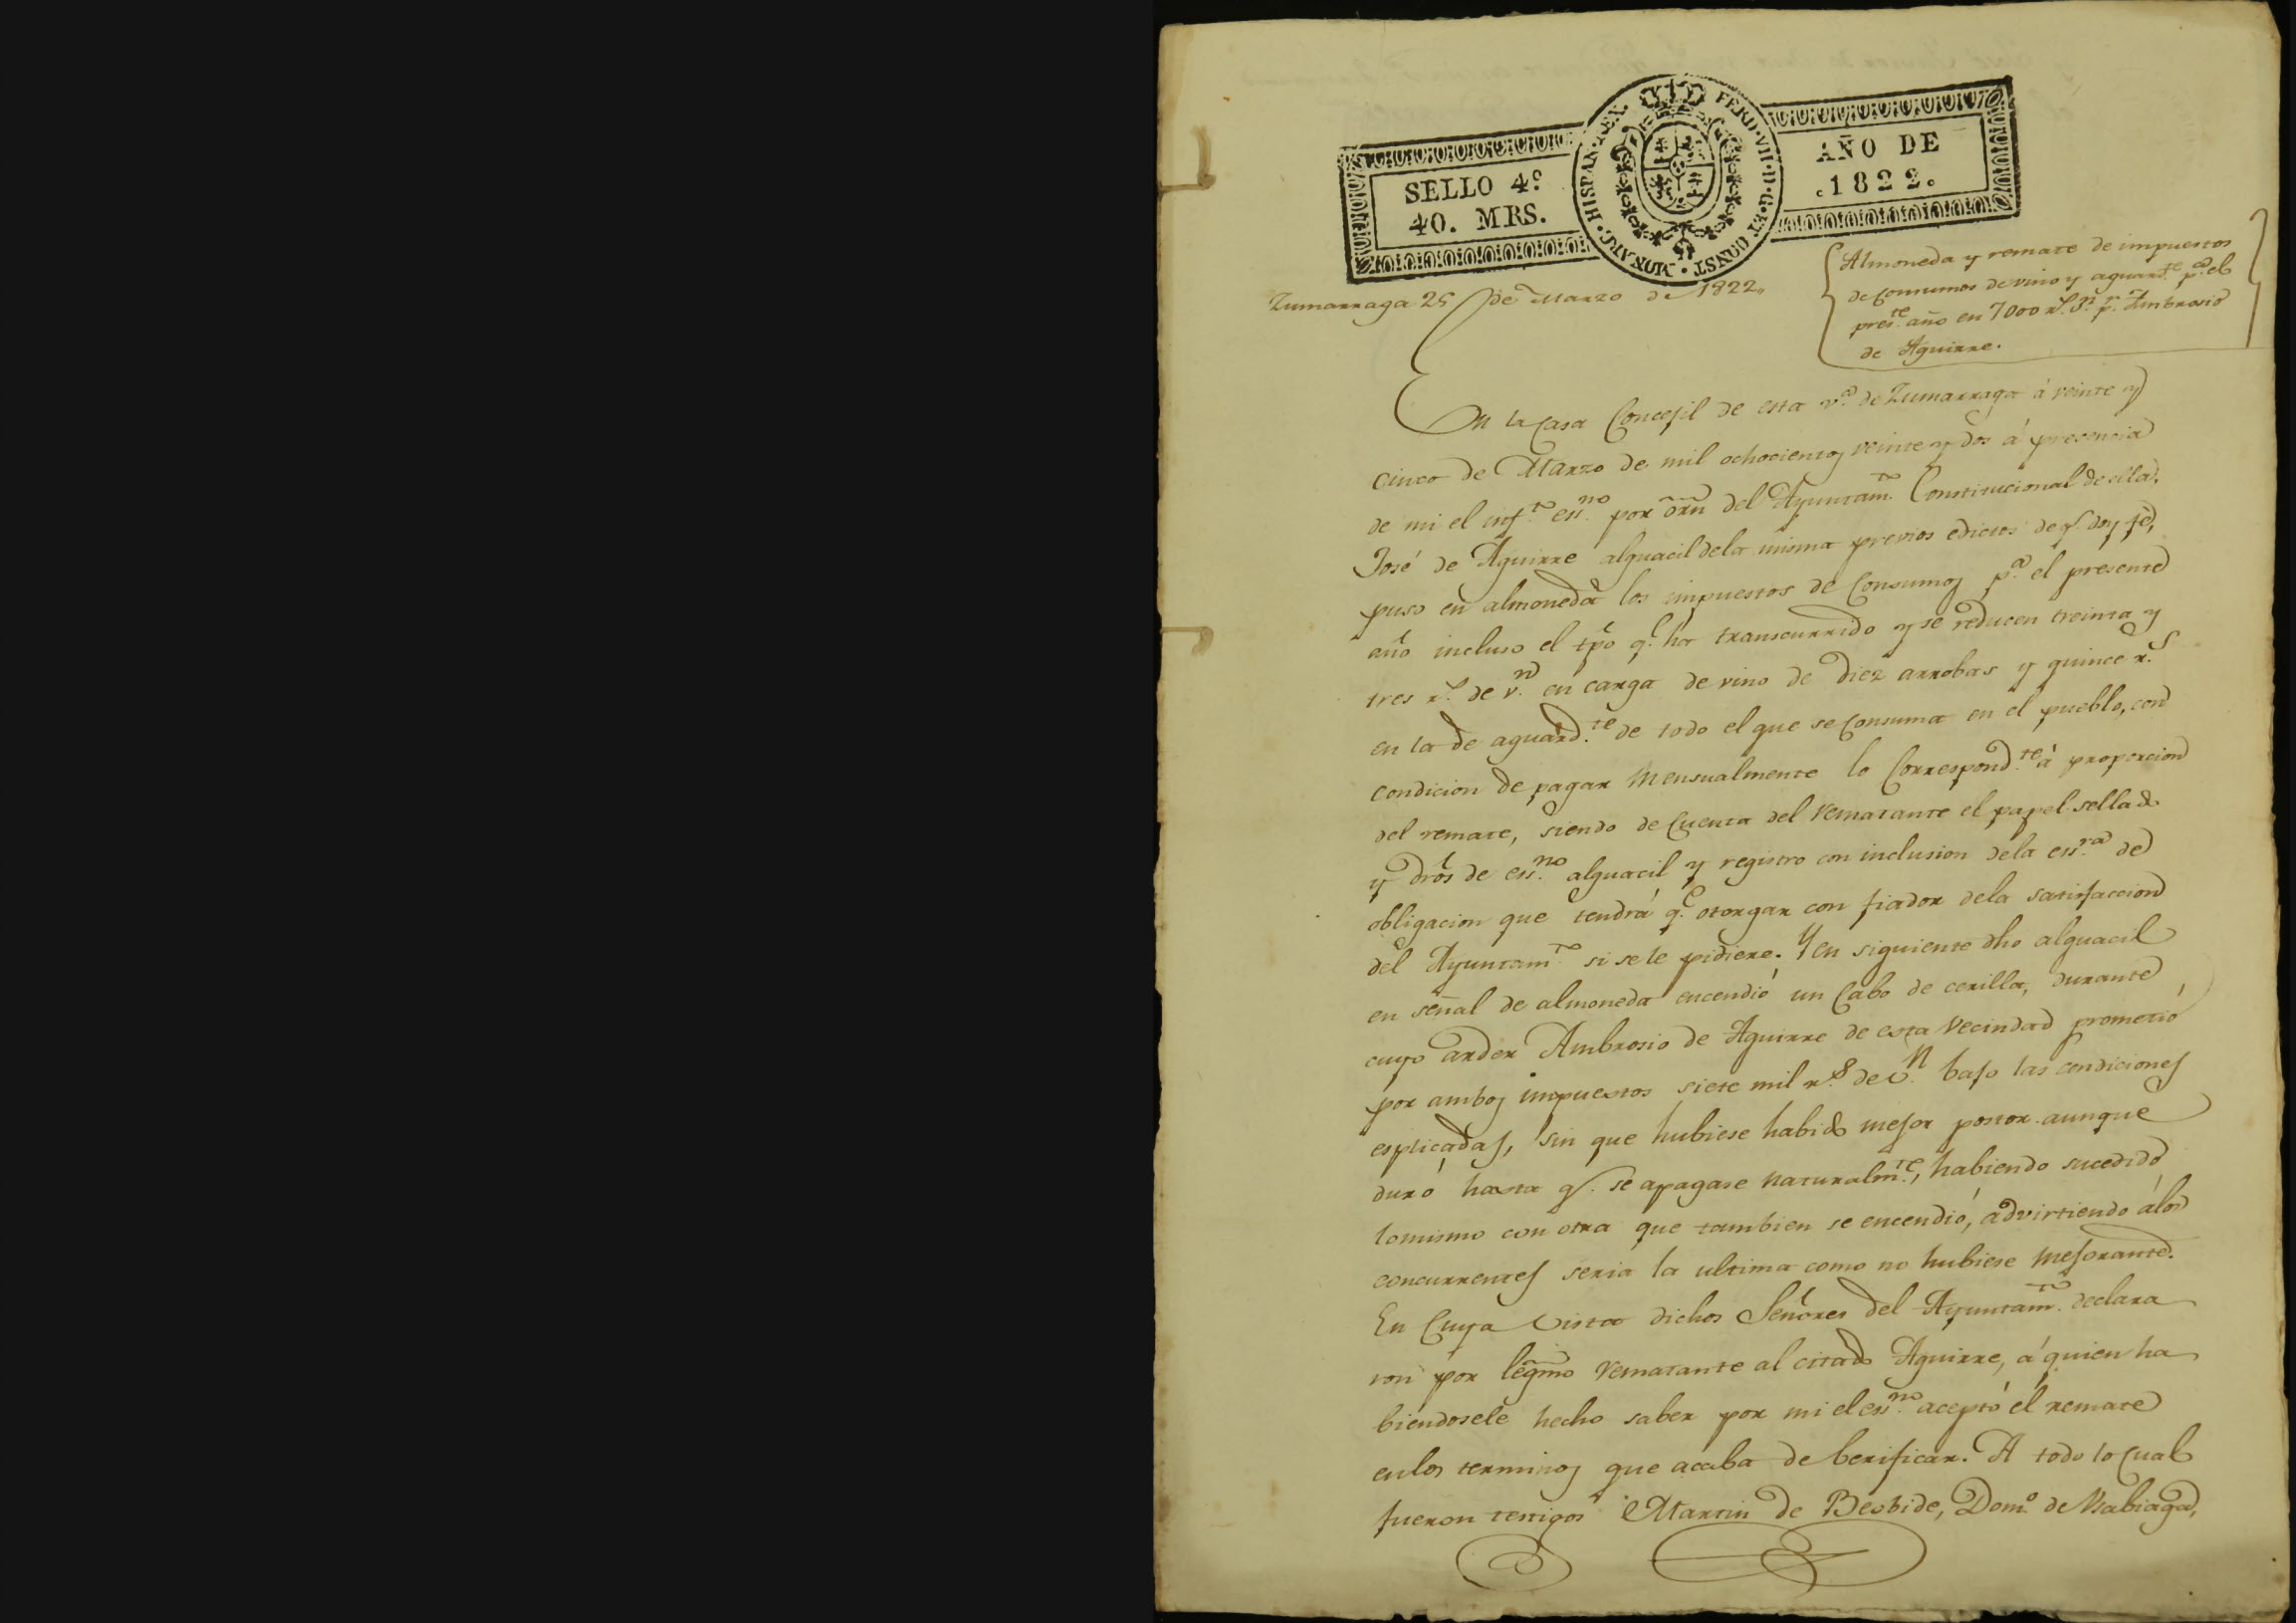 SELLO 4º
40. MRS.
FERD·VII·D·G·ET CONST·MONARC·HISPAN·REX.
AÑO DE
.1822.
Zumarraga 25 de Marzo de 1822,,
Almoneda y remate de impuestos
de consumos de vino y aguard.te p.a el
pres.te año en 7000 r.s v.n p.r Ambrosio
de Aguirre.
En la Casa Concejil de esta v.a de Zumarraga á veinte y
cinco de Marzo de mil ochocientos veinte y dos á presencia
de mi el inf.to ess.no por orñ del Ayuntam.to Constitucional de ella,
José de Aguirre alguacil dela misma previos edictos de q.e doy fé,
puso en almoneda los impuestos de Consumos p.a el presente
año incluso el tpõ q.e ha transcurrido y se reducen treinta y
tres r.s de v.n en carga de vino de diez arrobas y quince r.s
en la de aguard.te de todo el que se Consuma en el pueblo, con
condicion de pagar mensualmente lo Correspond.te á proporcion
del remate, siendo de Cuenta del rematante el papel sellado
y drõs de ess.no alguacil y registro con inclusion dela ess.ra de
obligacion que tendrá q.e otorgar con fiador dela satisfaccion
del Ayuntam.to si se le pidiere. Y en siguiente dho alguacil
en señal de almoneda encendió un Cabo de cerilla, durante
cuyo arder Ambrosio de Aguirre de esta Vecindad prometió
por ambos impuestos siete mil r.s de v.n bajo las condiciones
esplicadas, sin que hubiese habido mejor postor aunque
duró hasta q.e se apagase naturalm.te, habiendo sucedido
lo mismo con otra que tambien se encendió, advirtiendo álos
concurrentes seria la ultima como no hubiese mejorante.
En Cuya Vista dichos Señores del Ayuntam.to declara
ron por legmõ rematante al citado Aguirre, á quien ha
biendosele hecho saber por mi el ess.no aceptó el remate
en los terminos que acaba de berificar. A todo lo Cual
fueron testigos Martin de Beobide, Dom.o de Usabiaga,